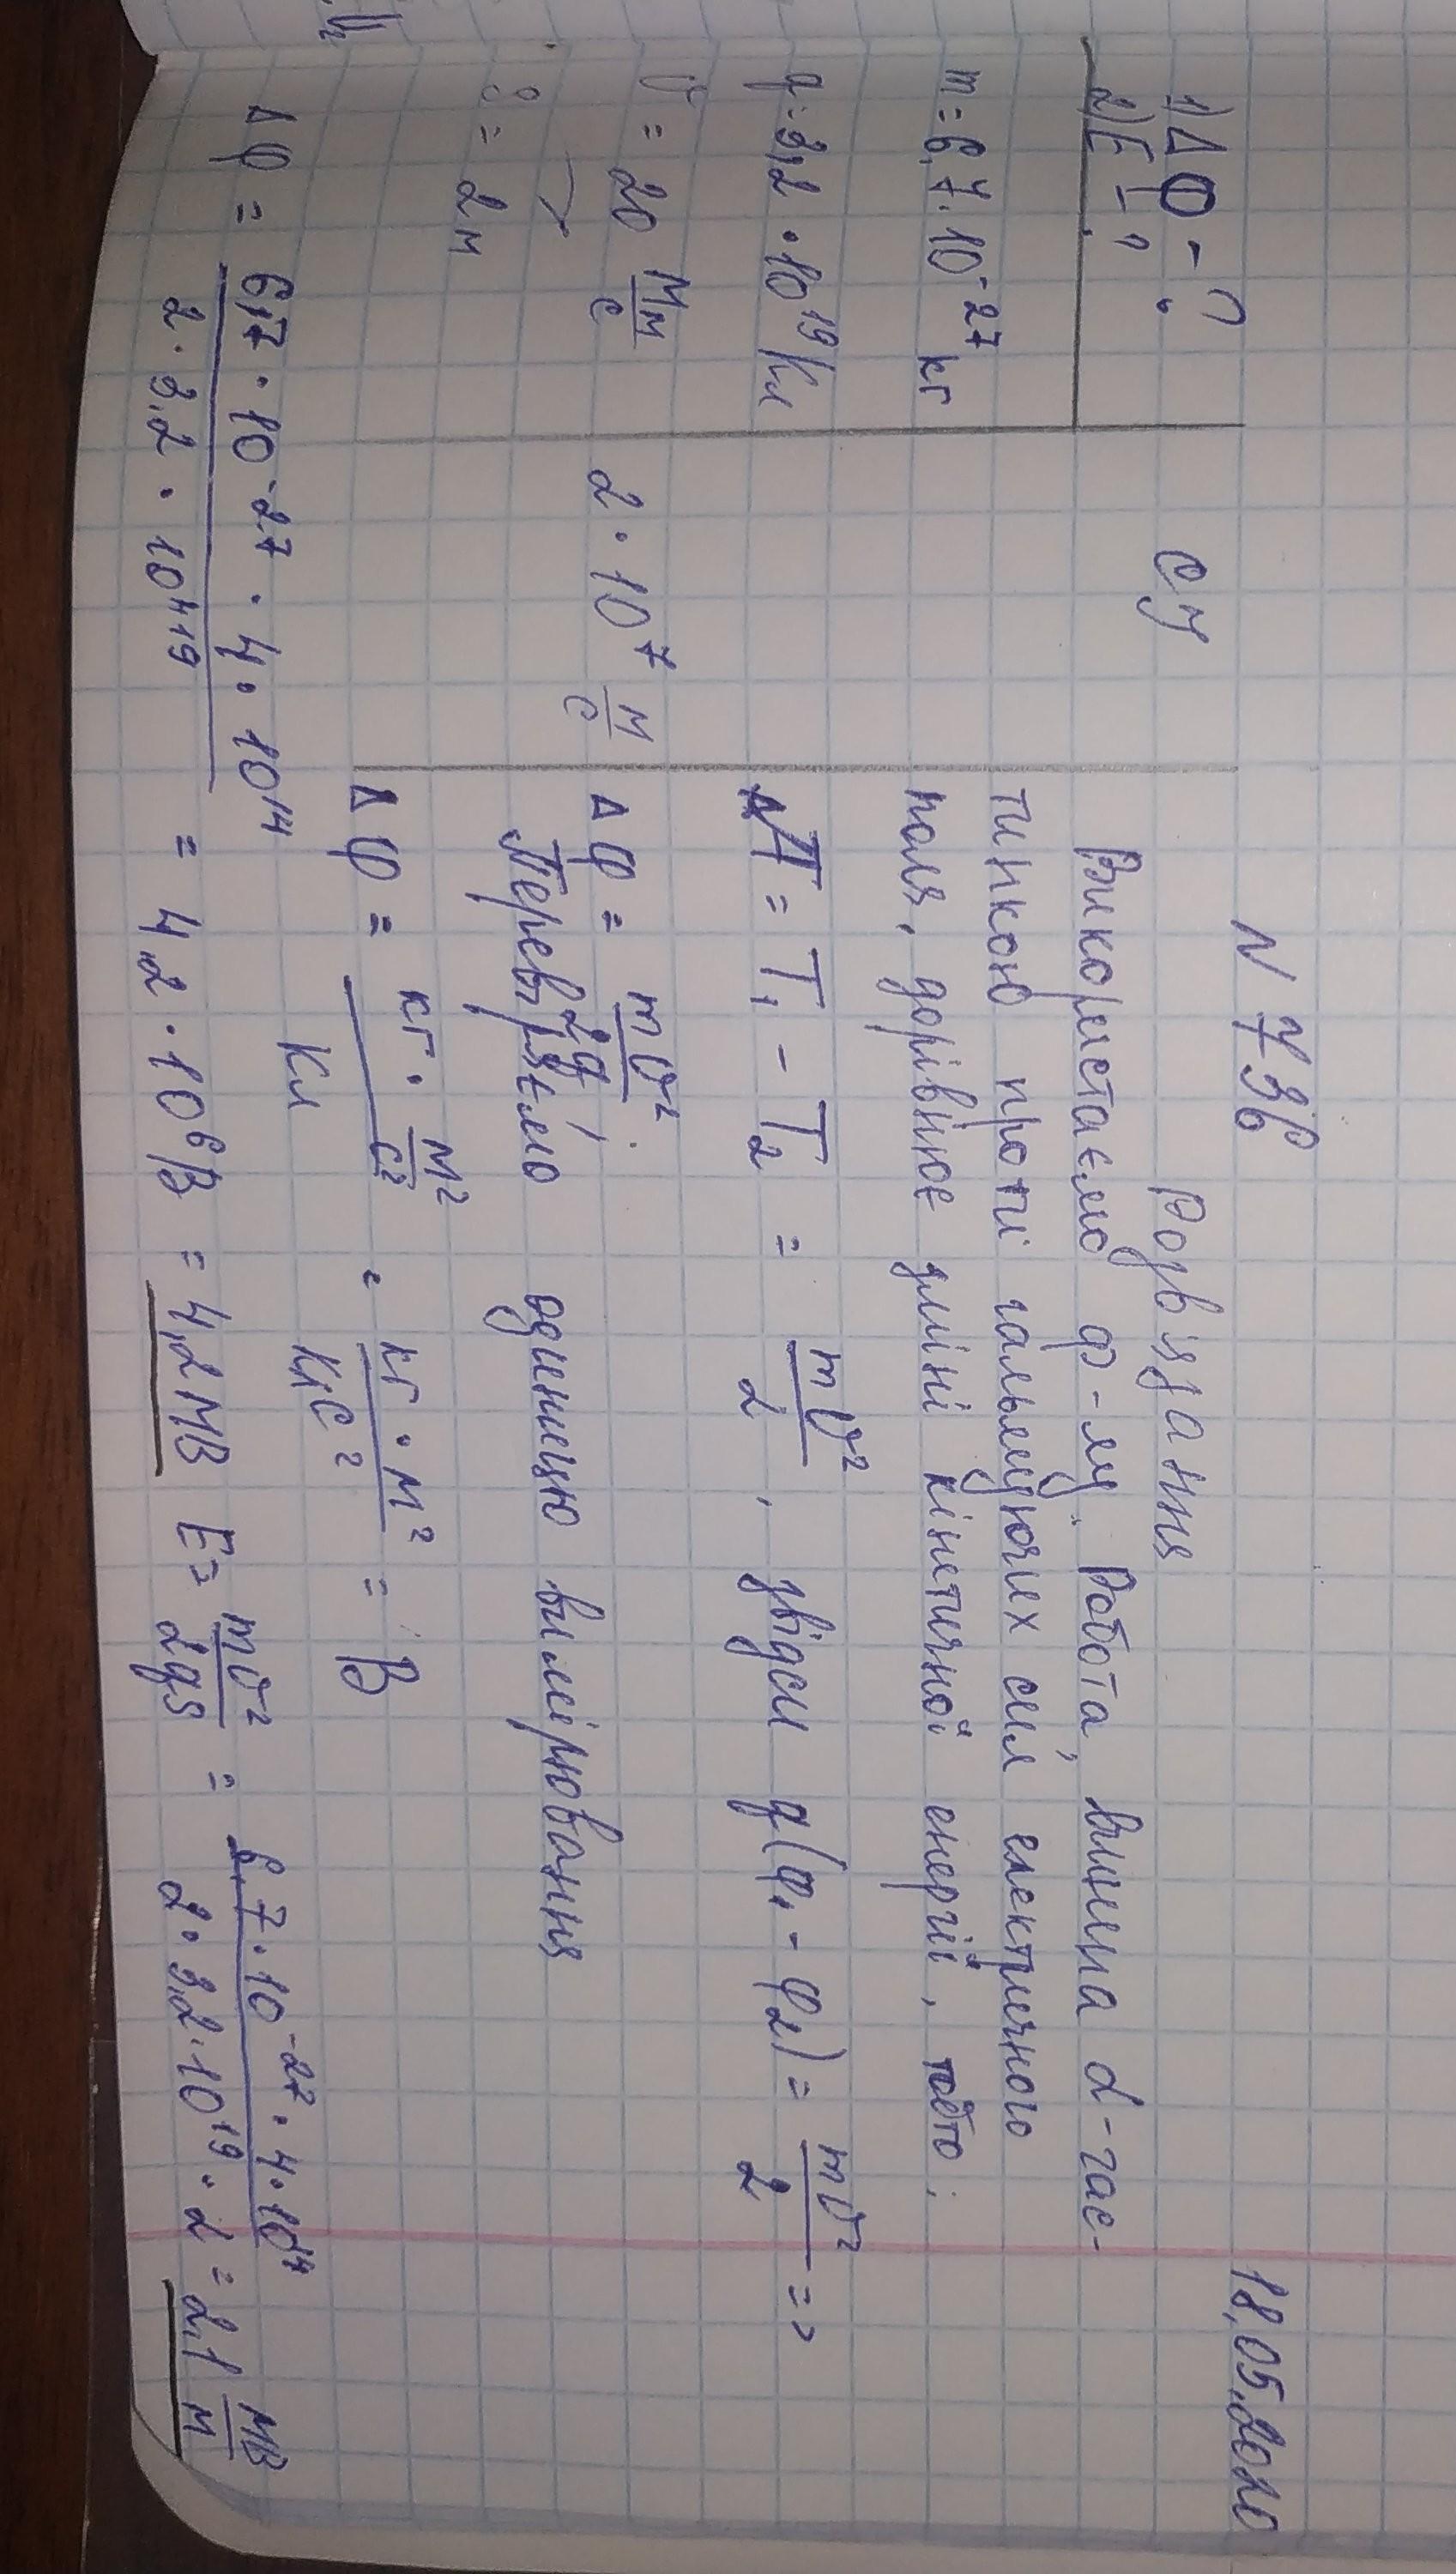 18.05.2020
N 736
1) Δφ - ?
2) E - ?
СИ
Розв'язання
m = 6,7 · 10⁻²⁷ кг
q = 3,2 · 10¹⁹ Кл
v = 20 Мм/с
2 · 10⁷ м/с
S = 2 м
Використаємо ф-лу. Робота, вчинена α-час-
тинкою проти гальмуючих сил електричного
поля, дорівнює зміні кінетичної енергії, тобто:
A = T₁ - T₂ = mv²/2, звідси q(φ₁ - φ₂) = mv²/2 =>
Δφ = mv²/2q;
Перевіряємо одиницю вимірювання
Δφ = кг · м²/с² / Кл = кг · м²/Кл с² = В
Δφ = 6,7 · 10⁻²⁷ · 4 · 10¹⁴ / 2 · 3,2 · 10¹⁹ = 4,2 · 10⁶ В = 4,2 МВ E = mv²/2qs = 6,7 · 10⁻²⁷ · 4 · 10¹⁴ / 2 · 3,2 · 10¹⁹ · 2 = 2,1 МВ/м